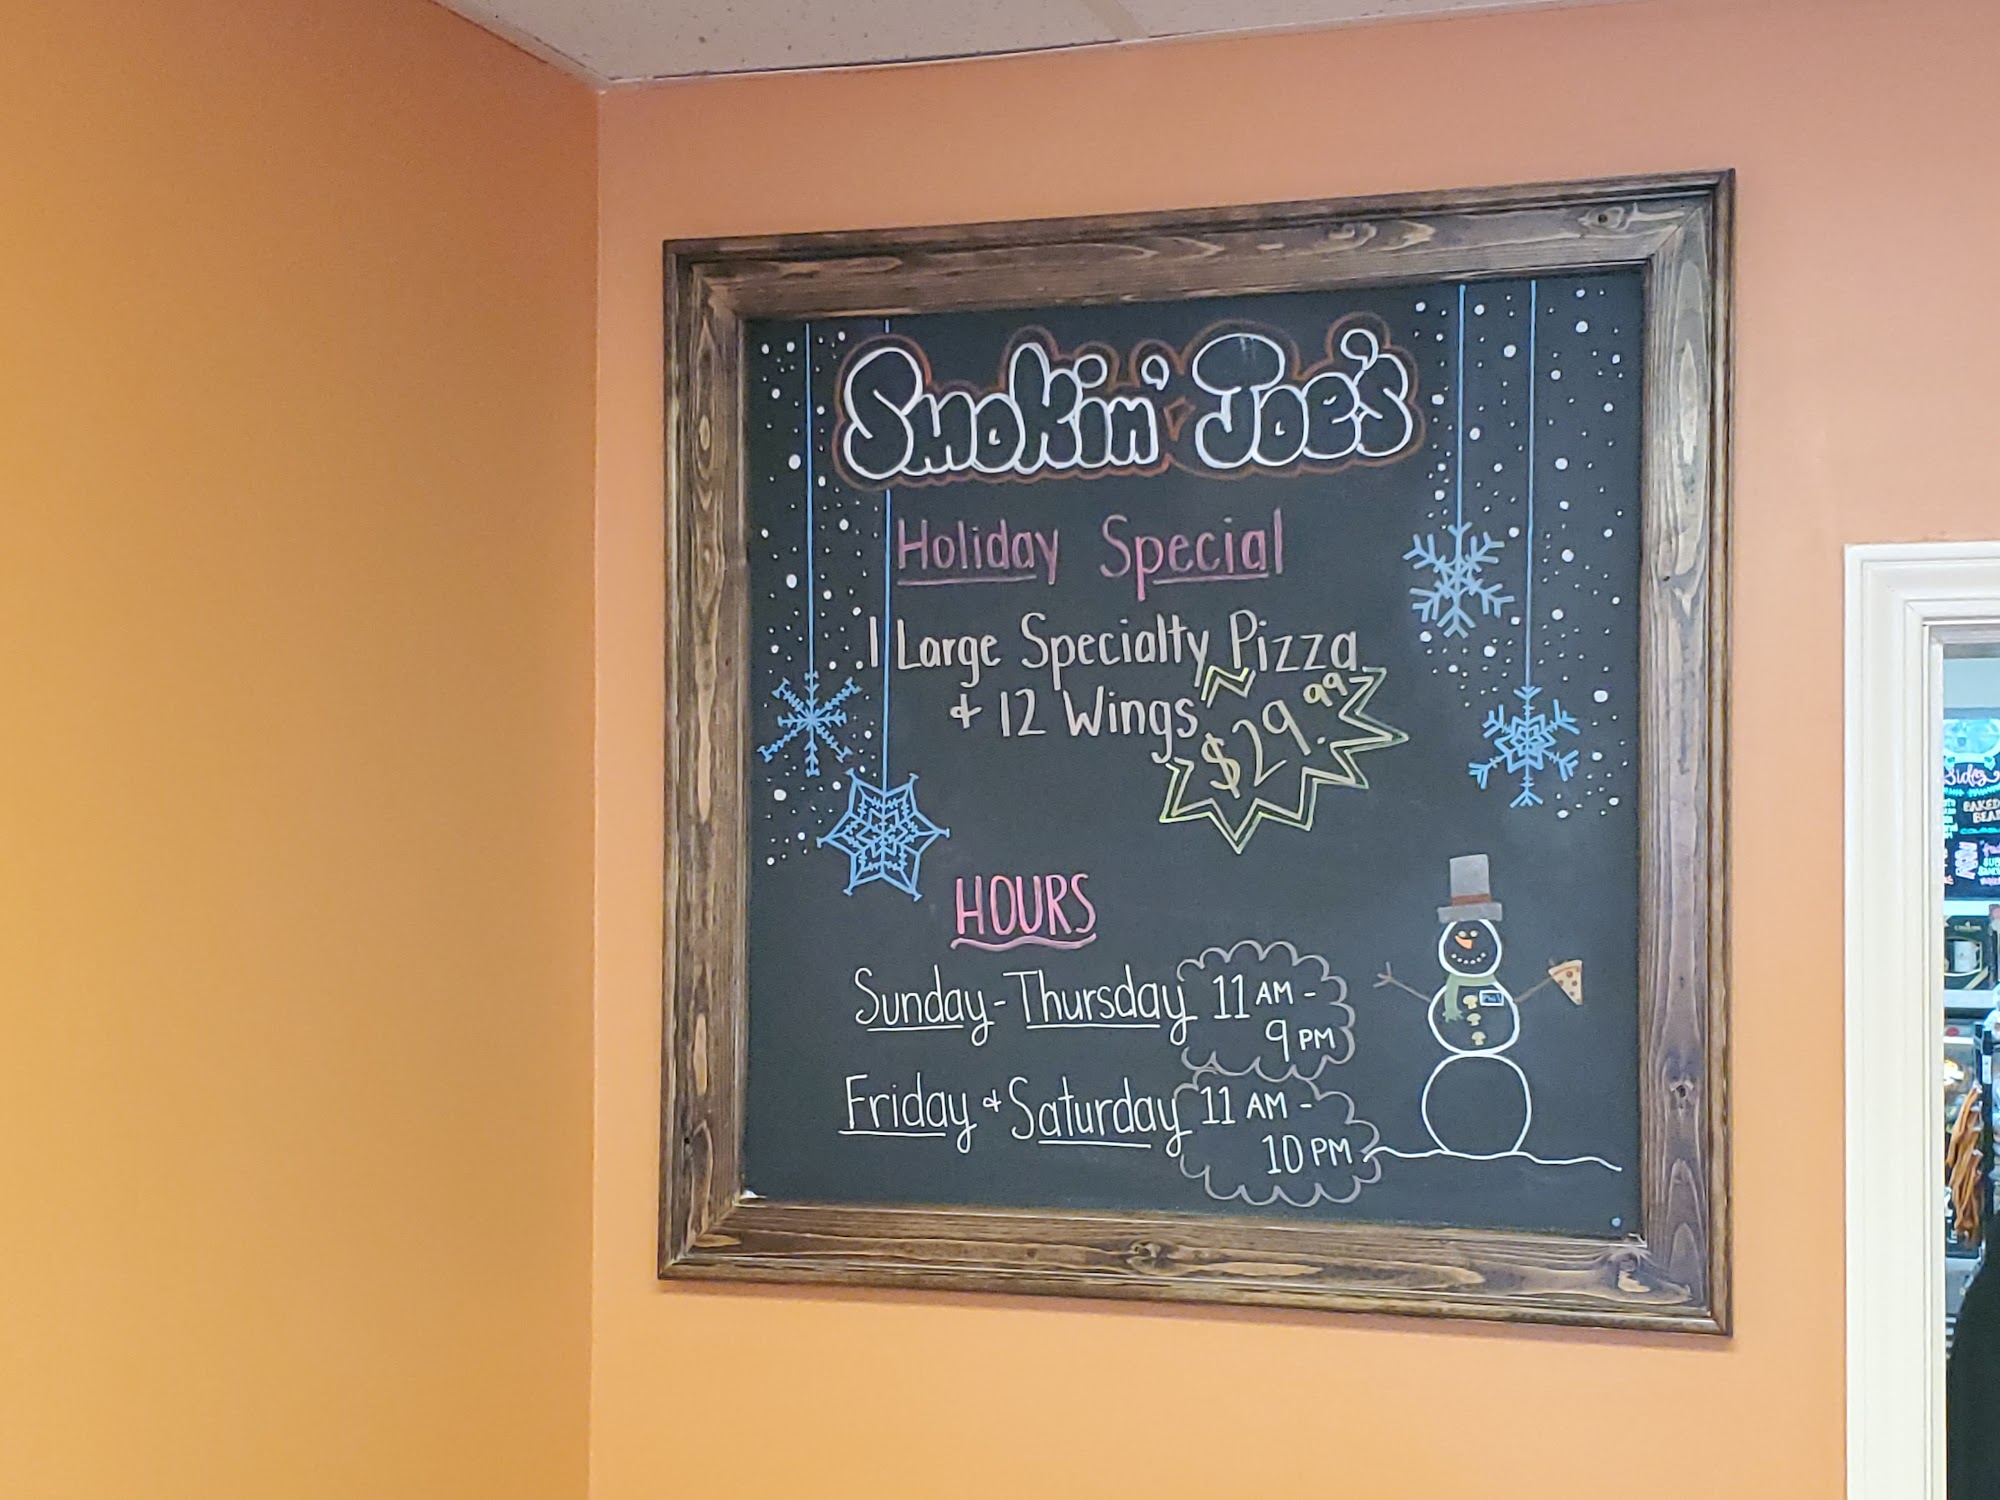 Smokin' Joe's
Holiday Special
1 Large Specialty Pizza
& 12 Wings
$29.99
HOURS
Sunday - Thursday 11 AM -
9 PM
Friday & Saturday 11 AM -
10 PM
Sides
BAKED